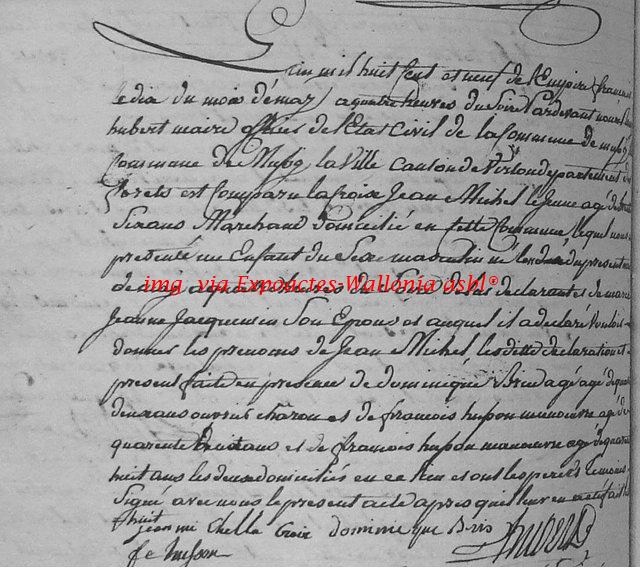 L'an mil huit Cent et neuf de l'Empire francais
le dix du mois de may a quatre heures du Soir Pardevant nous
hubert maire officier de l'Etat Civil de la Commune de
Commune de la Ville Canton de Virton departement
forets est Comparu la croix Jean Michel le Jeune agé de
Sixans Marchand domicilié en cette Commune Lequel nous
presenté un Enfant du Sexe masculin né le du present
de may a quatre heures du Soir de lui declarant et de marie
Jeanne Jacquemin Son Epouse et auquel il a declaré vouloir
donner les prenoms de Jean Michel, les dette declaration et
present faite en presence de dominique agé agé de
deux ans ouvrier charon et de francois husson manoeuvre agé de
quarente huit ans et de francois husson manoeuvre agé de quarante
huit ans les deux domiciliés en ce lieu et ont les pere et temoins
Signé avec nous le present acte apres qu'il leur en a été fait
jean mi Chelle Croix dominique
fr husson
img via Expoactes-Wallonia asbl®